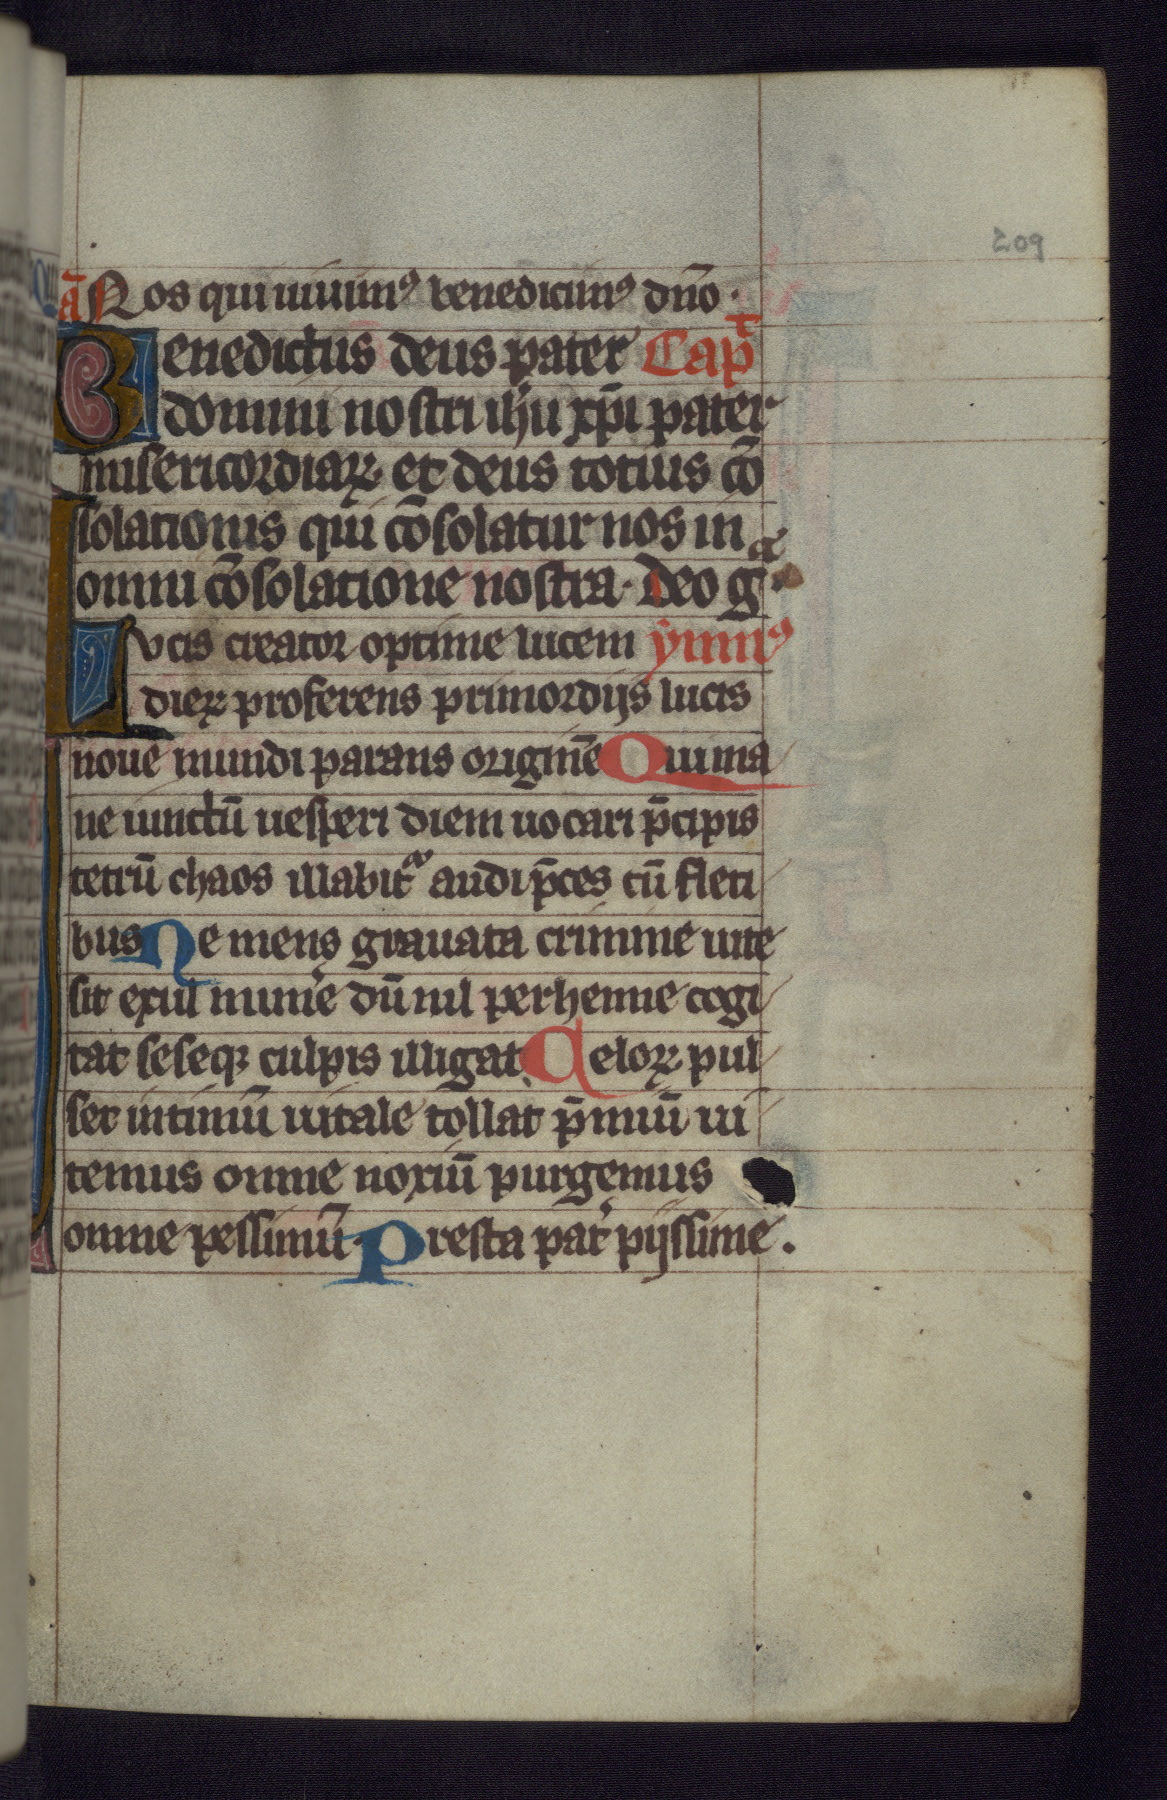 209
ā Nos qui uiuimꝰ benedicimꝰ dn̄o ·
Benedictus deus pater Capᵗ
domini nostri ihu xp̄i pater
misericordiaꝝ et deus totius cō
solationis qui cōsolatur nos in
omni cōsolatione nostra · Deo gᵃ ·
Lucis creator optime lucem ymnꝰ
dieꝝ proferens primordijs lucis
noue mundi parans originē Qui ma
ne iunctū uesperi diem uocari p̄cipis
tetrū chaos illabit᷑ audi p̄ces cū fleti
bus Ne mens grauata crimine uite
sit exul mun̄e dū nil perhenne cogi
tat seseqꝫ culpis illigat Celoꝝ pul
set intimū uitale tollat p̄miū ui
temus omne noxiū purgemus
omne pessimū Presta pat̄ pijssime .